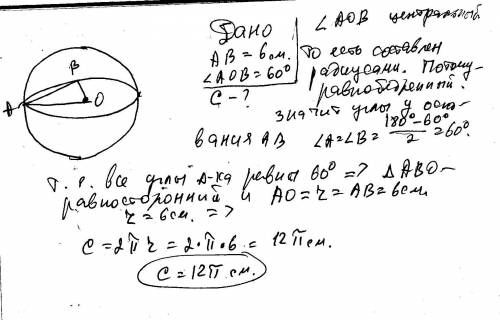 Дано
AB = 6 см.
∠AOB = 60°
C - ?
∠AOB центральный
то есть составлен
радиусами. Потому
равнобедренный.
значит углы у осно-
вания AB ∠A=∠B= 180°-60° / 2 = 60°.
т.е. все углы Δ-ка равны 60° => ΔABO-
равносторонний и AO = r = AB = 6 см
r = 6 см. =>
C = 2πr = 2·π·6 = 12π см.
C = 12π см.
A
B
O